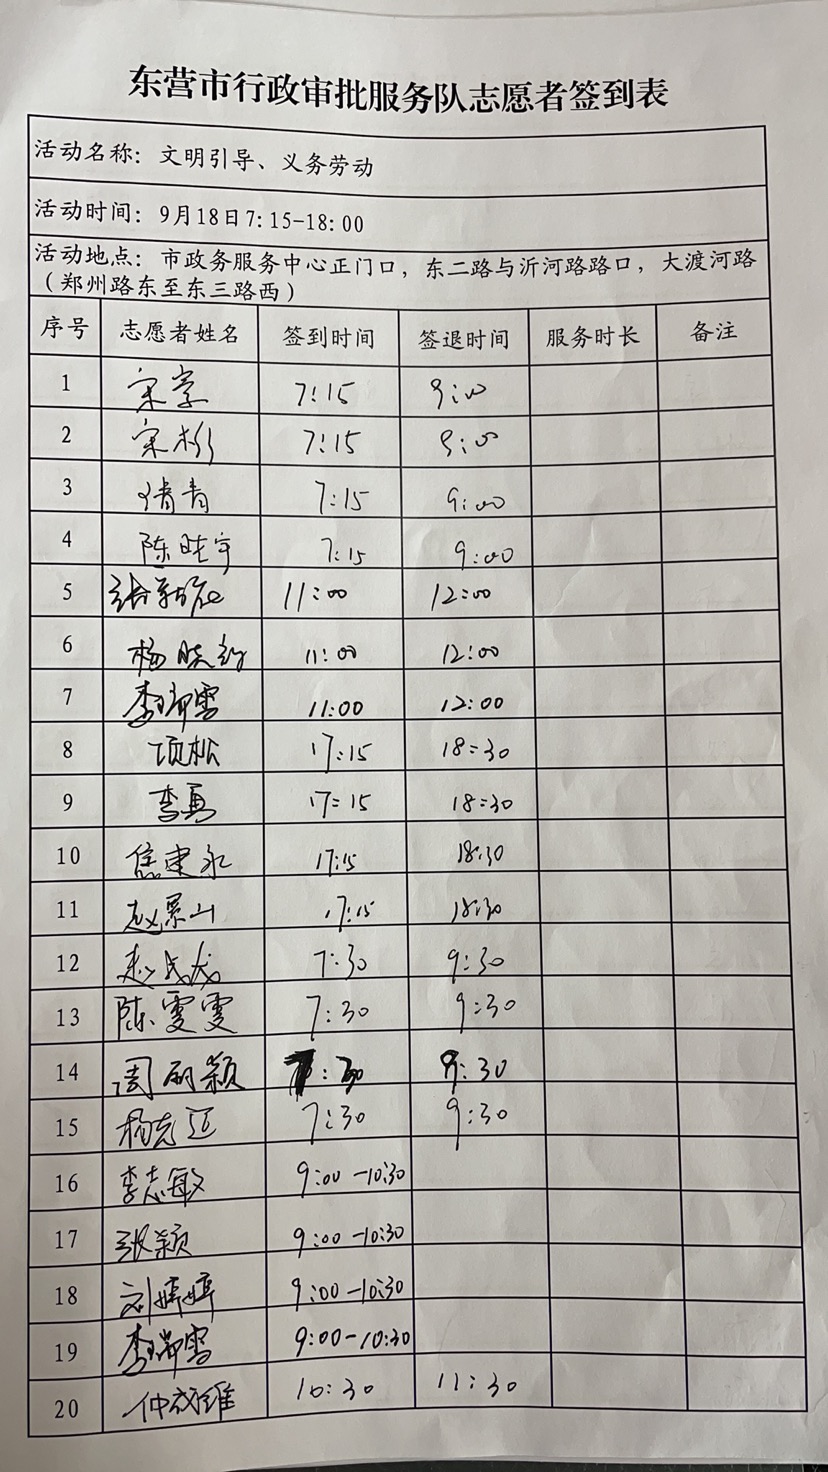 东营市行政审批服务队志愿者签到表
活动名称：文明引导、义务劳动
活动时间：9月18日7:15-18:00
活动地点：市政务服务中心正门口，东二路与沂河路路口，大渡河路
（郑州路东至东三路西）
序号 志愿者姓名 签到时间 签退时间 服务时长 备注
1 7:15 9:00
2 7:15 9:00
3 倩青 7:15 9:00
4 陈晓宇 7:15 9:00
5 11:00 12:00
6 11:00 12:00
7 李瑞雪 11:00 12:00
8 项松 17:15 18:30
9 李勇 17:15 18:30
10 焦建永 17:15 18:30
11 赵景山 17:15 18:30
12 7:30 9:30
13 陈雯雯 7:30 9:30
14 周丽颖 7:30 9:30
15 7:30 9:30
16 李志敏 9:00-10:30
17 张颖 9:00-10:30
18 刘婷婷 9:00-10:30
19 李瑞雪 9:00-10:30
20 10:30 11:30